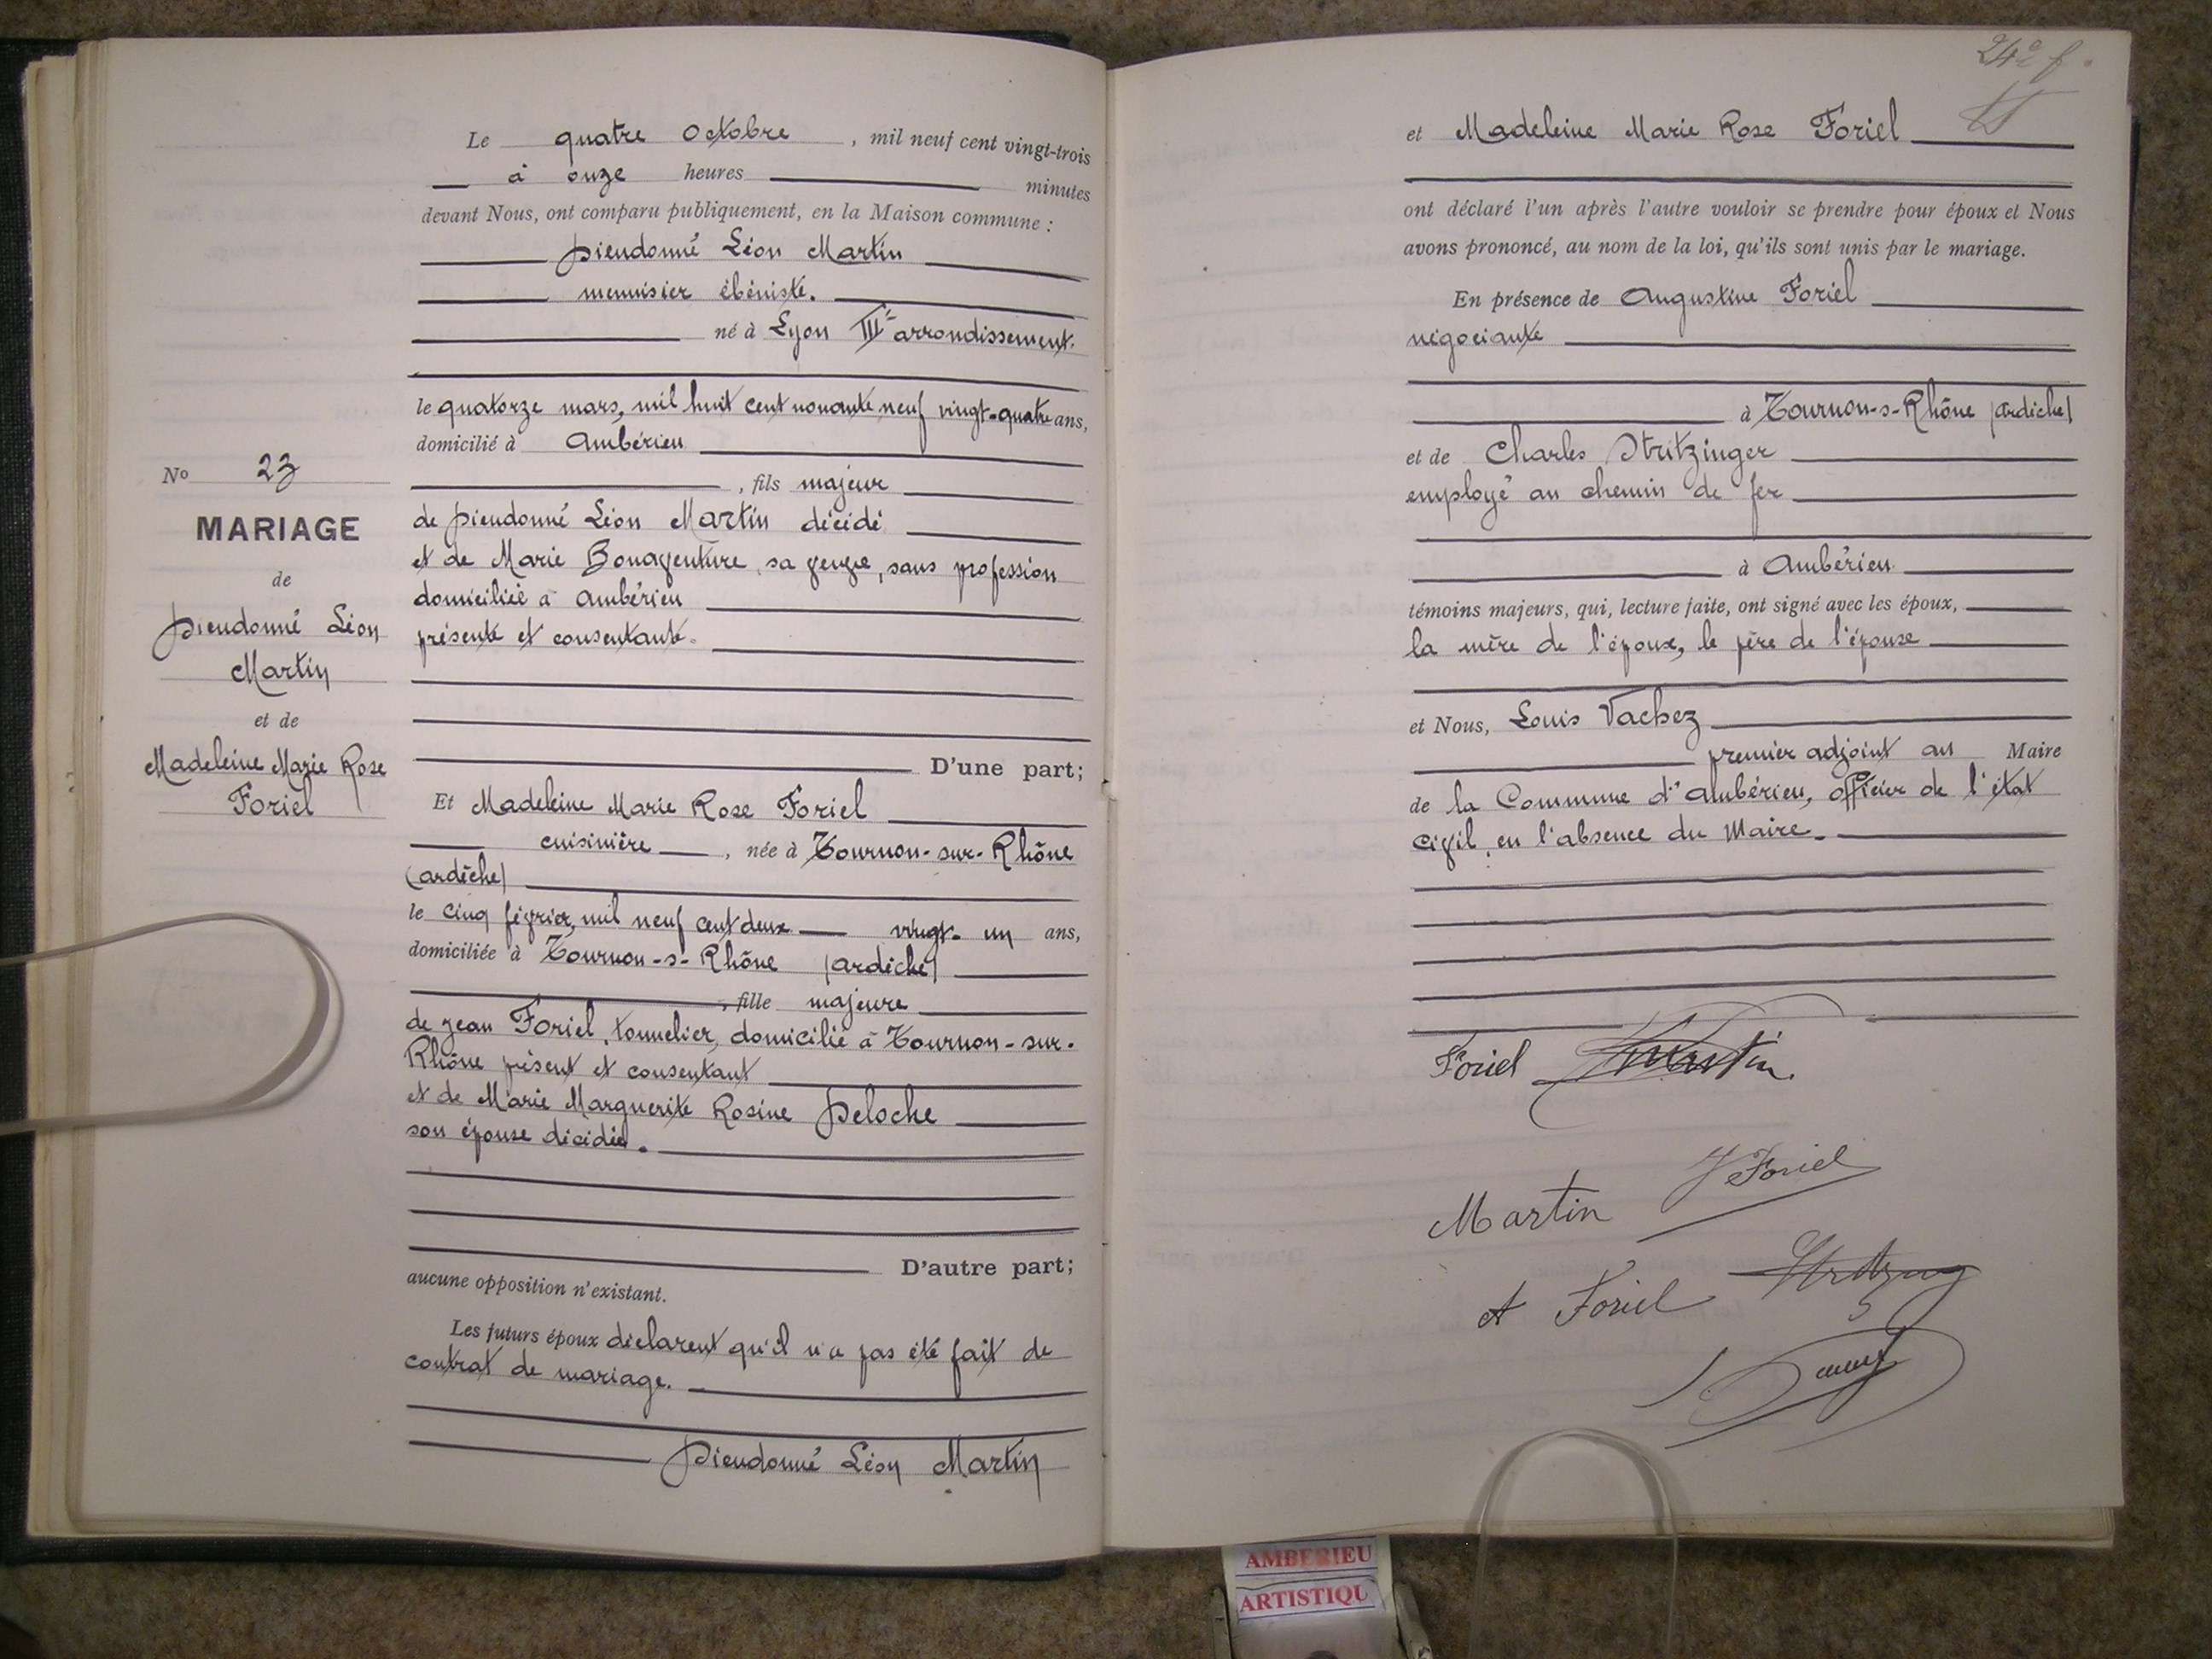 Le quatre Octobre, mil neuf cent vingt-trois
à onze heures minutes
devant Nous, ont comparu publiquement, en la Maison commune :
Dieudonné Léon Martin
menuisier ébéniste.
né à Lyon IIIe arrondissement.
le quatorze mars, mil huit cent nonante neuf vingt-quatre ans,
domicilié à Ambérieu
, fils majeur
de Dieudonné Léon Martin décédé
et de Marie Bonaventure, sa veuve, sans profession
domiciliée à Ambérieu
présente et consentante.
D'une part;
No 23
MARIAGE
de
Dieudonné Léon
Martin
et de
Madeleine Marie Rose
Foriel
Et Madeleine Marie Rose Foriel
cuisinière, née à Tournon-sur-Rhône
(Ardèche)
le cinq février, mil neuf cent deux vingt-un ans,
domiciliée à Tournon-s-Rhône (Ardèche)
, fille majeure
de Jean Foriel, tonnelier, domicilié à Tournon-sur-
Rhône présent et consentant
et de Marie Marguerite Rosine Deloche
son épouse décédée.
D'autre part;
aucune opposition n'existant.
Les futurs époux déclarent qu'il n'a pas été fait de
contrat de mariage.
Dieudonné Léon Martin
24e f.
et Madeleine Marie Rose Foriel
ont déclaré l'un après l'autre vouloir se prendre pour époux et Nous
avons prononcé, au nom de la loi, qu'ils sont unis par le mariage.
En présence de Augustine Foriel
négociante
à Tournon-s-Rhône (Ardèche)
et de Charles Stritzinger
employé au chemin de fer
à Ambérieu
témoins majeurs, qui, lecture faite, ont signé avec les époux,
la mère de l'époux, le père de l'épouse
et Nous, Louis Vachez
premier adjoint au Maire
de la Commune d'Ambérieu, officier de l'état
civil, en l'absence du Maire.
Foriel Martin
J Foriel
Martin
A Foriel
AMBERIEU
ARTISTIQU